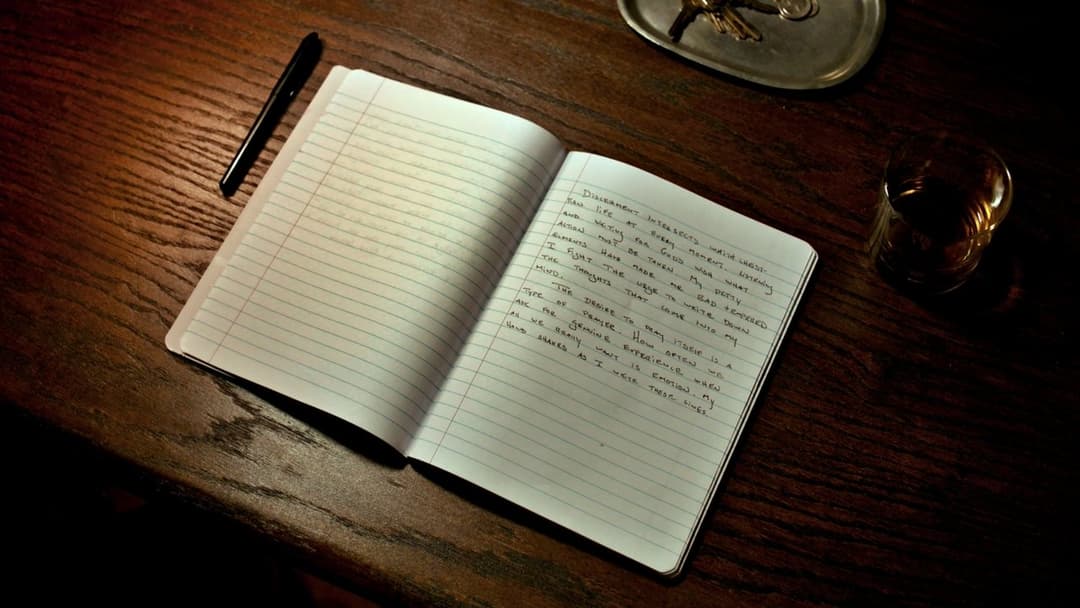 DISCERNMENT INTERSECTS WITH CHRIST-
IAN LIFE AT EVERY MOMENT. LISTENING
AND WAITING FOR GOD'S WISH WHAT
ACTION MUST BE TAKEN. MY PETTY
AILMENTS HAVE MADE ME BAD TEMPERED
I FIGHT THE URGE TO WRITE DOWN
THE THOUGHTS THAT COME INTO MY
MIND.
THE DESIRE TO PRAY ITSELF IS A
TYPE OF PRAYER. HOW OFTEN WE
ASK FOR GENUINE EXPERIENCE WHEN
ALL WE REALLY WANT IS EMOTION. MY
HAND SHAKES AS I WRITE THESE LINES